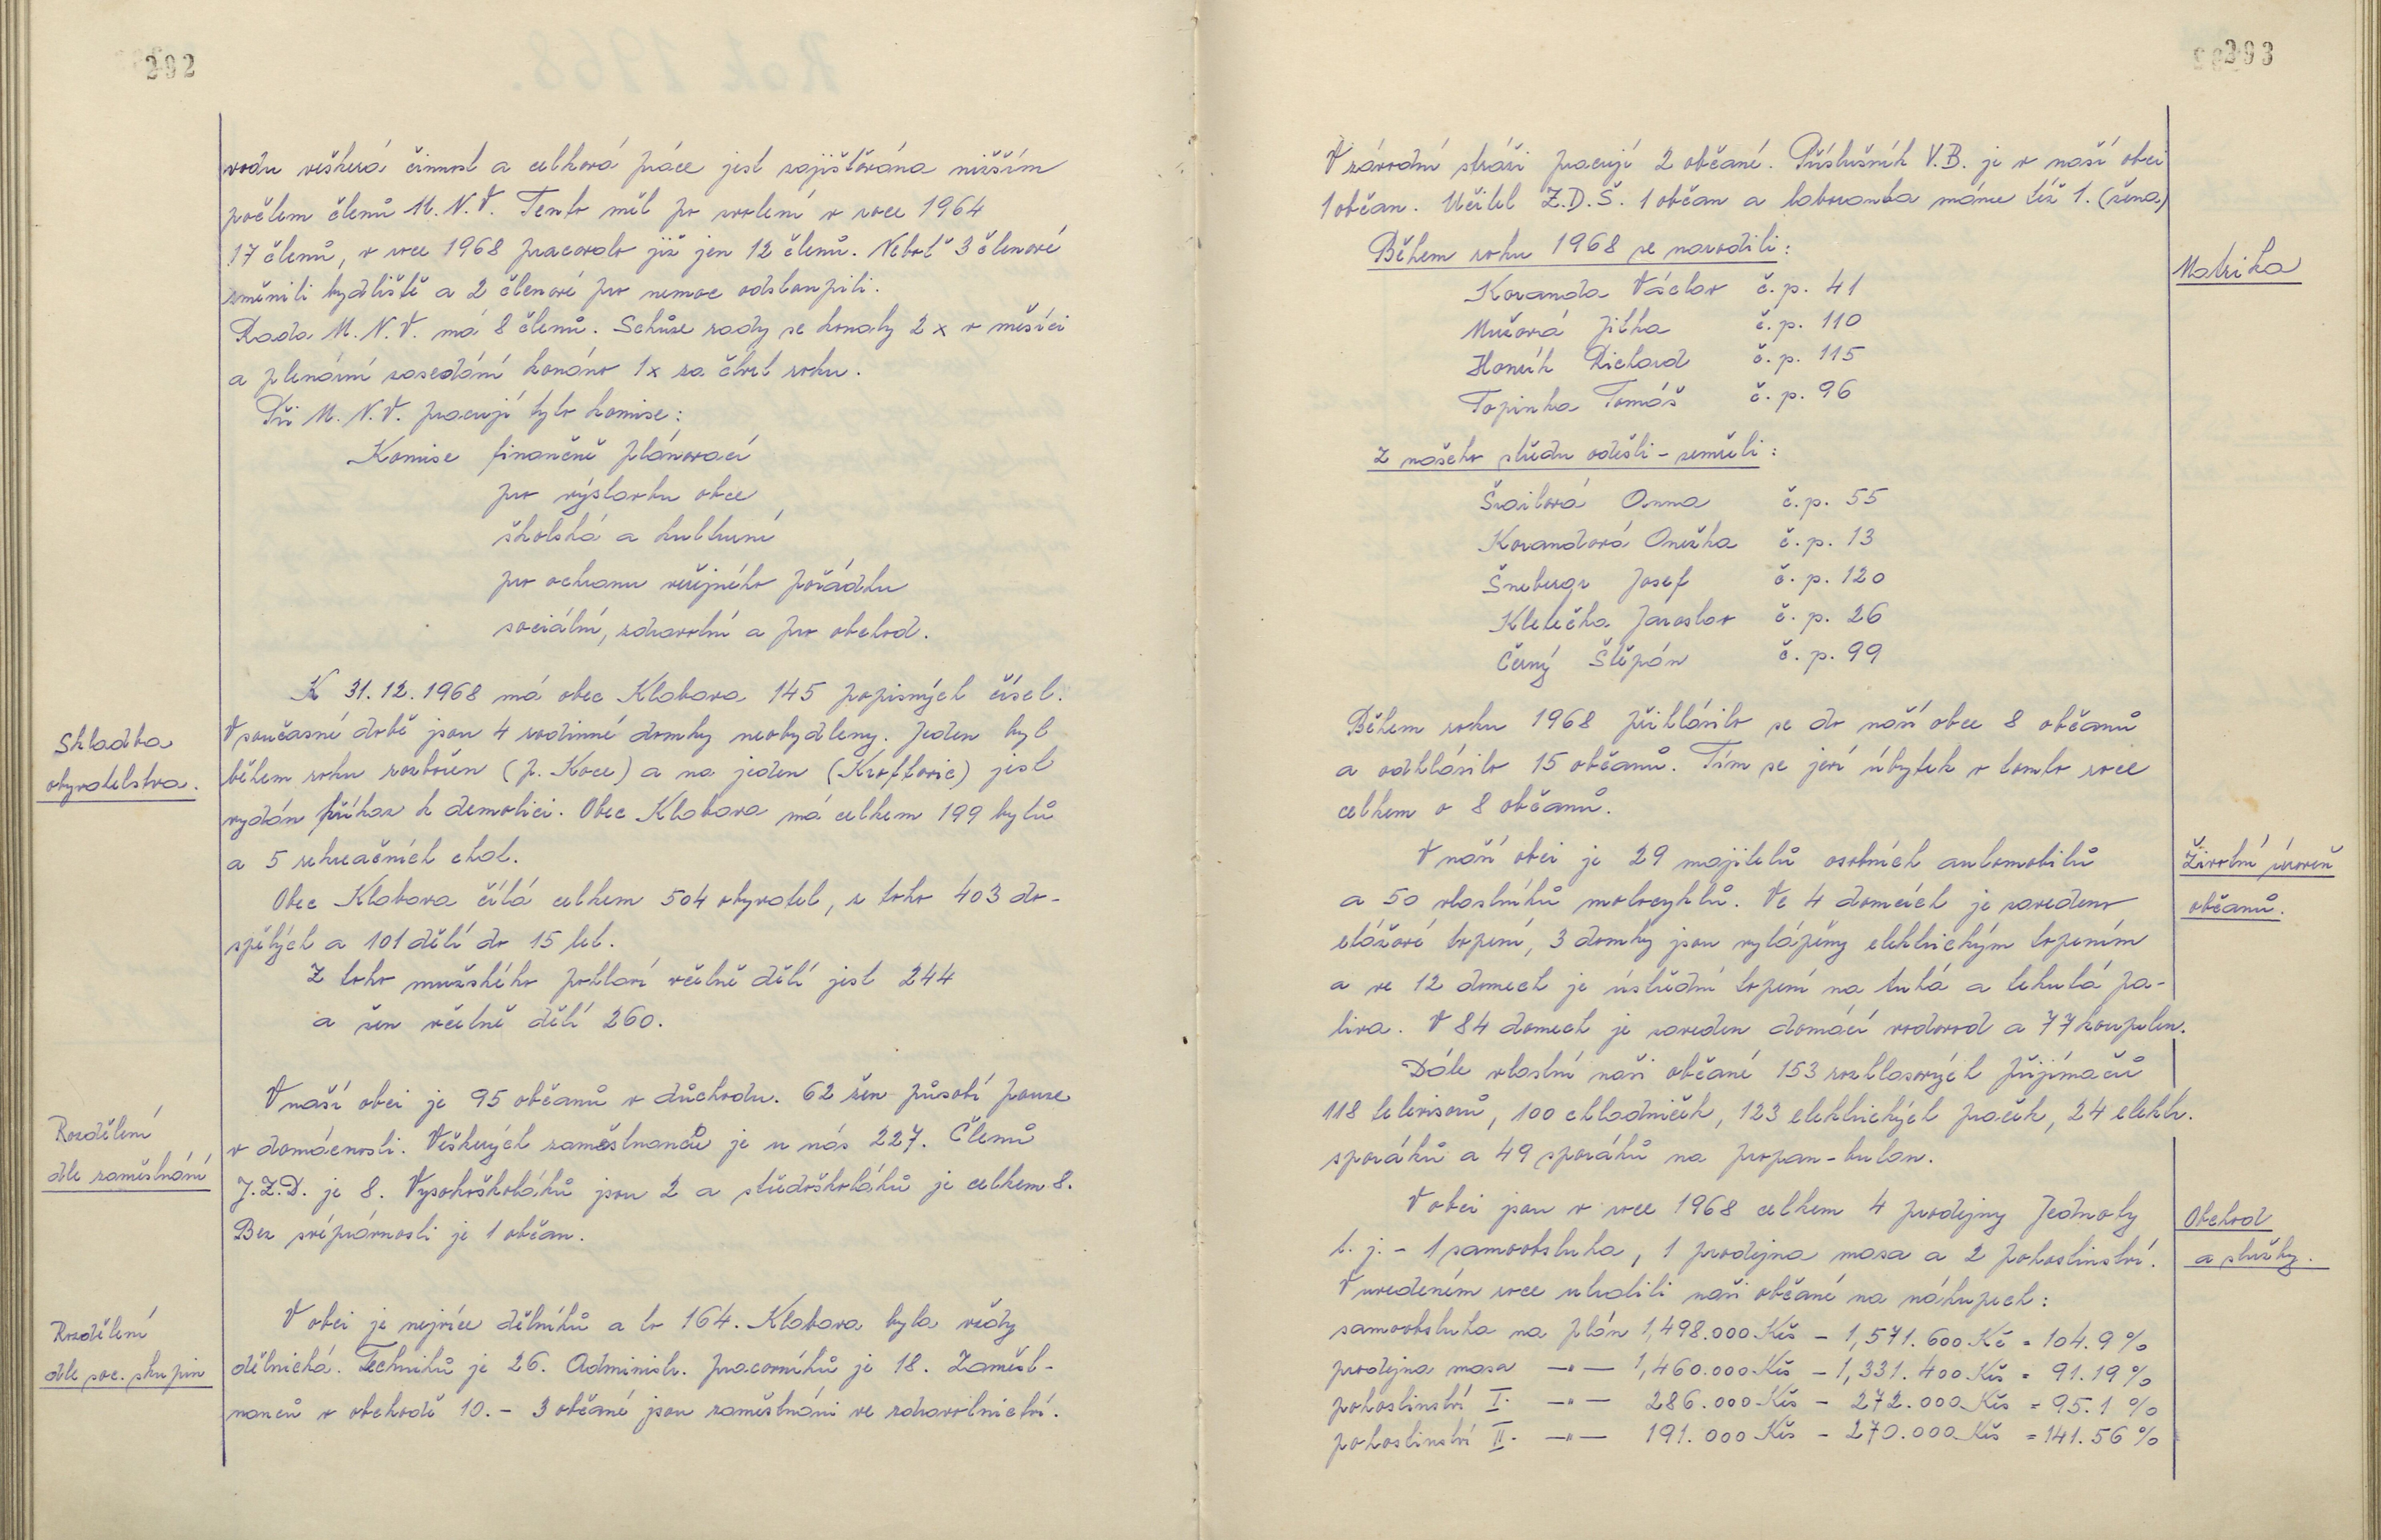 292
vodu veškerá činnost a celková práce jest zajišťována nižším
počtem členů M.N.V. Tento měl po zvolení v roce 1964
17 členů, v roce 1968 pracovalo již jen 12 členů. Neboť 3 členové
změnili bydliště a 2 členové pro nemoc odstoupili.
Rada M.N.V. má 8 členů. Schůze rady se konaly 2x v měsíci
a plenární zasedání konáno 1x za čtvrt roku.
Při M.N.V. pracují tyto komise:
Komise finančně plánovací
pro výstavbu obce
školská a kulturní
pro ochranu veřejného pořádku
sociální, zdravotní a pro obchod.
Skladba
obyvatelstva.
K 31.12.1968 má obec Klabava 145 popisných čísel.
V současné době jsou 4 rodinné domky neobydleny. Jeden byl
během roku rozbořen (p. Koce) a na jeden (Kroftovic) jest
vydán příkaz k demolici. Obec Klabava má celkem 199 bytů
a 5 rekreačních chat.
Obec Klabava čítá celkem 504 obyvatel, z toho 403 do-
spělých a 101 dětí do 15 let.
Z toho mužského pohlaví včetně dětí jest 244
a žen včetně dětí 260.
Rozdělení
dle zaměstnání
V naší obci je 95 občanů v důchodu. 62 žen působí pouze
v domácnosti. Veškerých zaměstnanců je u nás 227. Členů
J.Z.D. je 8. Vysokoškoláků jsou 2 a středoškoláků je celkem 8.
Bez svéprávnosti je 1 občan.
Rozdělení
dle soc. skupin
V obci je nejvíce dělníků a to 164. Klabava byla vždy
dělnická. Techniků je 26. Administr. pracovníků je 18. Zaměst-
nanců v obchodě 10. - 3 občané jsou zaměstnáni ve zdravotnictví.
293
V závodní stráži pracují 2 občané. Příslušník V.B. je v naší obci
1 občan. Učitel Z.D.Š. 1 občan a laboranta máme též 1. (žena)
Matrika
Během roku 1968 se narodili:
Koranda Václav č.p. 41
Mužová Jitka č.p. 110
Honzík Richard č.p. 115
Topinka Tomáš č.p. 96
Z našeho středu odešli - zemřeli:
Anna č.p. 55
Korandová Anežka č.p. 13
Šnebergr Josef č.p. 120
Kletečka Jaroslav č.p. 26
Černý Štěpán č.p. 99
Během roku 1968 přihlásilo se do naší obce 8 občanů
a odhlásilo 15 občanů. Tím se jeví úbytek v tomto roce
celkem o 8 občanů.
Životní úroveň
občanů.
V naší obci je 29 majitelů osobních automobilů
a 50 vlastníků motocyklů. Ve 4 domcích je zavedeno
etážové topení, 3 domky jsou vytápěny elektrickým topením
a ve 12 domech je ústřední topení na tuhá a tekutá pa-
liva. V 84 domech je zaveden domácí vodovod a 77 koupelen.
Dále vlastní naši občané 153 rozhlasových přijímačů
118 televisorů, 100 chladniček, 123 elektrických praček, 24 elektr.
sporáků a 49 sporáků na propan-butan.
Obchod
a služby.
V obci jsou v roce 1968 celkem 4 prodejny Jednoty
t. j. - 1 samoobsluha, 1 prodejna masa a 2 pohostinství.
V uvedeném roce utratili naši občané na nákupech:
samoobsluha na plán 1,498.000 Kčs - 1,571.600 Kč = 104.9 %
prodejna masa —"— 1,460.000 Kčs - 1,331.400 Kčs = 91.19 %
pohostinství I. —"— 286.000 Kčs - 272.000 Kčs = 95.1 %
pohostinství II. —"— 191.000 Kčs - 270.000 Kčs = 141.56 %